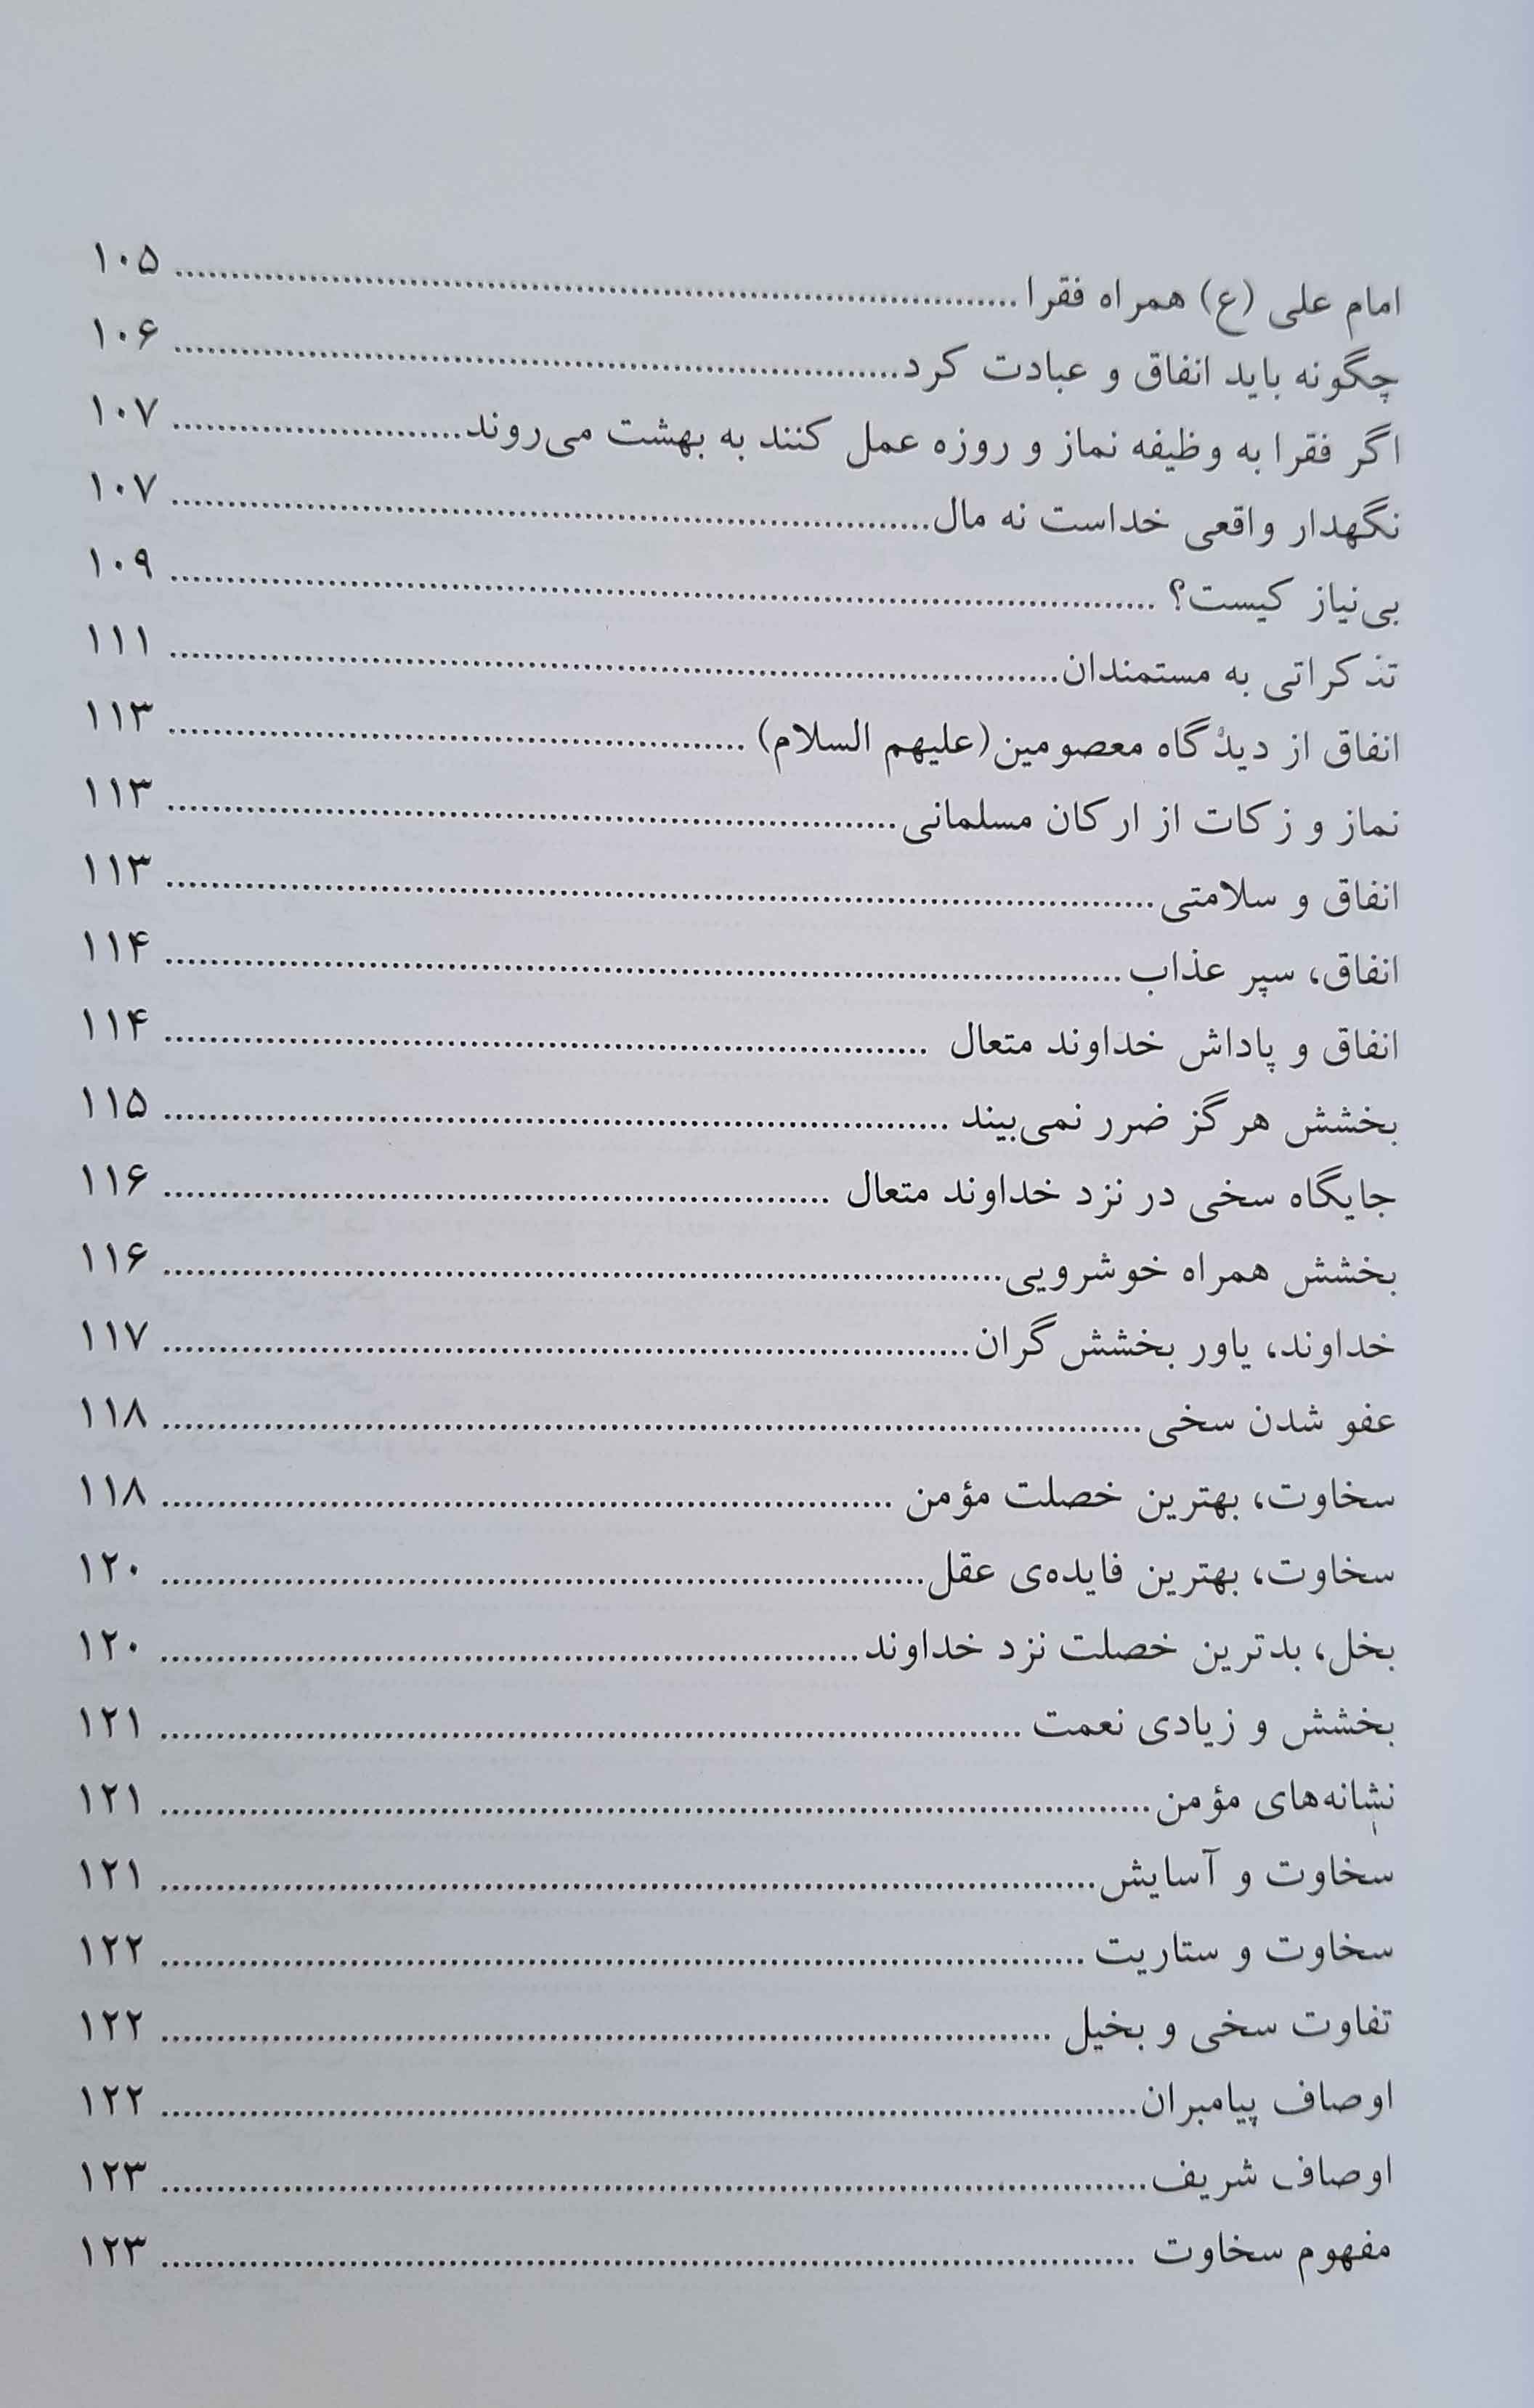 امام علی (ع) همراه فقرا ........ ۱۰۵
چگونه باید انفاق و عبادت کرد ........ ۱۰۶
اگر فقرا به وظیفه نماز و روزه عمل کنند به بهشت می‌روند ........ ۱۰۷
نگهدار واقعی خداست نه مال ........ ۱۰۷
بی‌نیاز کیست؟ ........ ۱۰۹
تذکراتی به مستمندان ........ ۱۱۱
انفاق از دیدگاه معصومین(علیهم السلام) ........ ۱۱۳
نماز و زکات از ارکان مسلمانی ........ ۱۱۳
انفاق و سلامتی ........ ۱۱۳
انفاق، سپر عذاب ........ ۱۱۴
انفاق و پاداش خداوند متعال ........ ۱۱۴
بخشش هرگز ضرر نمی‌بیند ........ ۱۱۵
جایگاه سخی در نزد خداوند متعال ........ ۱۱۶
بخشش همراه خوشرویی ........ ۱۱۶
خداوند، یاور بخشش‌گران ........ ۱۱۷
عفو شدن سخی ........ ۱۱۸
سخاوت، بهترین خصلت مؤمن ........ ۱۱۸
سخاوت، بهترین فایده‌ی عقل ........ ۱۲۰
بخل، بدترین خصلت نزد خداوند ........ ۱۲۰
بخشش و زیادی نعمت ........ ۱۲۱
نشانه‌های مؤمن ........ ۱۲۱
سخاوت و آسایش ........ ۱۲۱
سخاوت و ستاریت ........ ۱۲۲
تفاوت سخی و بخیل ........ ۱۲۲
اوصاف پیامبران ........ ۱۲۲
اوصاف شریف ........ ۱۲۳
مفهوم سخاوت ........ ۱۲۳